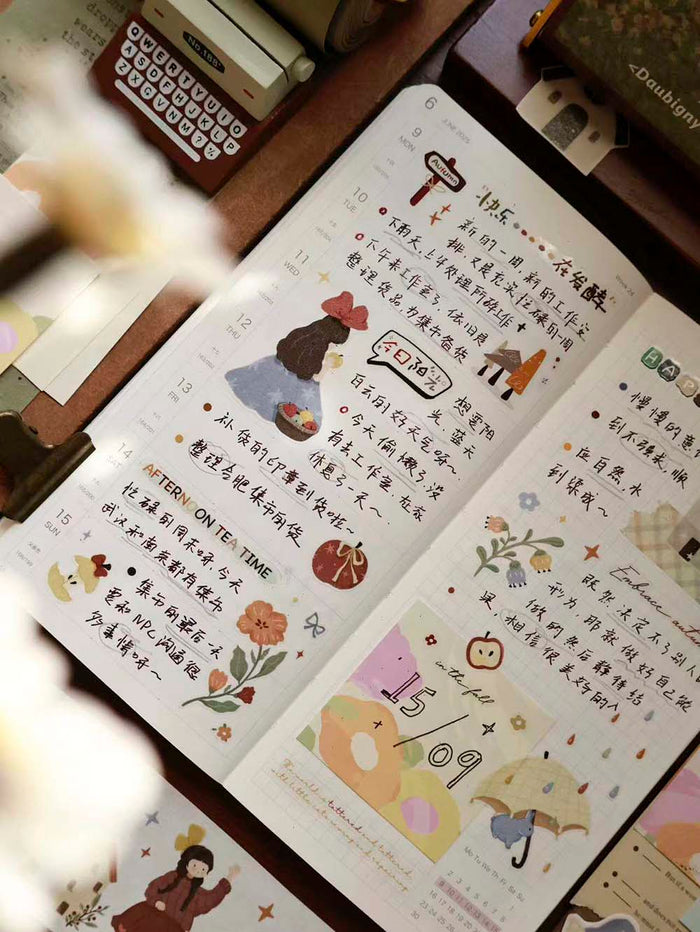 No.168
QWERTYUIO
ASDFGHJKL
ZXCVBNMP
<Daubigny
6 JUNE 2025
Week 24
9
MON
10
TUE
11
WED
12
THU
13
FRI
14
SAT
15
SUN
Autumn
"快乐
在发酵"
新的一周，新的工作安
排，又是充实忙碌的一周
下雨天，上午处理所余工作
下午来工作室了，依旧是
整理货品，为集市备货
今日阳光
想要阳
光，蓝天
白云的好天气呀～
今天偷懒了，没
有去工作室，在家
休息了一天～
补货的印章到货啦～
整理合肥集市的货
AFTERNOON TEA TIME
忙碌的周末呀，今天
武汉和南京都有集市
集市的最后一天
要和NPC沟通很
多事情呀～
慢慢的
到不强求，顺
应自然，水
到渠成～
Embrace
既然决定不了别人
何为，那就做好自己能
做的然后静待结
果，相信很美好的～
in the fall
15/09
Mo Tu We Th Fr Sa Su